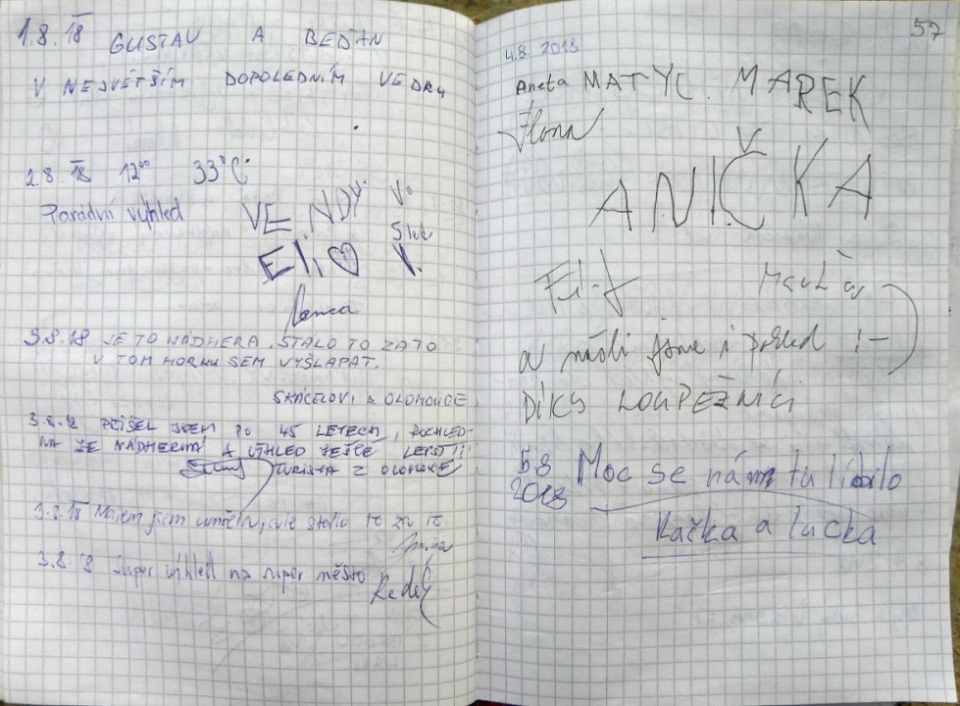 1.8.18 GUSTAV A BEĎAN
V NEJVĚTŠÍM DOPOLEDNÍM VEDRU
2.8.18 12⁰⁰ 33°C
Parádní výhled
VENDY
Eli ♡
V.
3.8.18 JE TO NÁDHERA. STÁLO TO ZATO
V TOM HORKU SEM VYŠLAPAT.
SKÁCELOVI z OLOMOUCE
3.8.18 PŘIŠEL JSEM PO 45 LETECH, POHLED
NA ZE NÁDHERNÁ A VÝHLED JEŠTĚ LEPŠÍ!!
TURISTA Z OLOMOUCE
3.8.18 jsem umřela, ale stálo to za to.
3.8.18 Super výhled na super město
57
4.8. 2018
Aneta MATYC. MAREK
Ilona
ANIČKA
Filip
a našli jsme i poklad :-)
DÍKS LOUPEŽNÍCI
5.8 Moc se nám tu líbilo
2018
Kačka a lucka